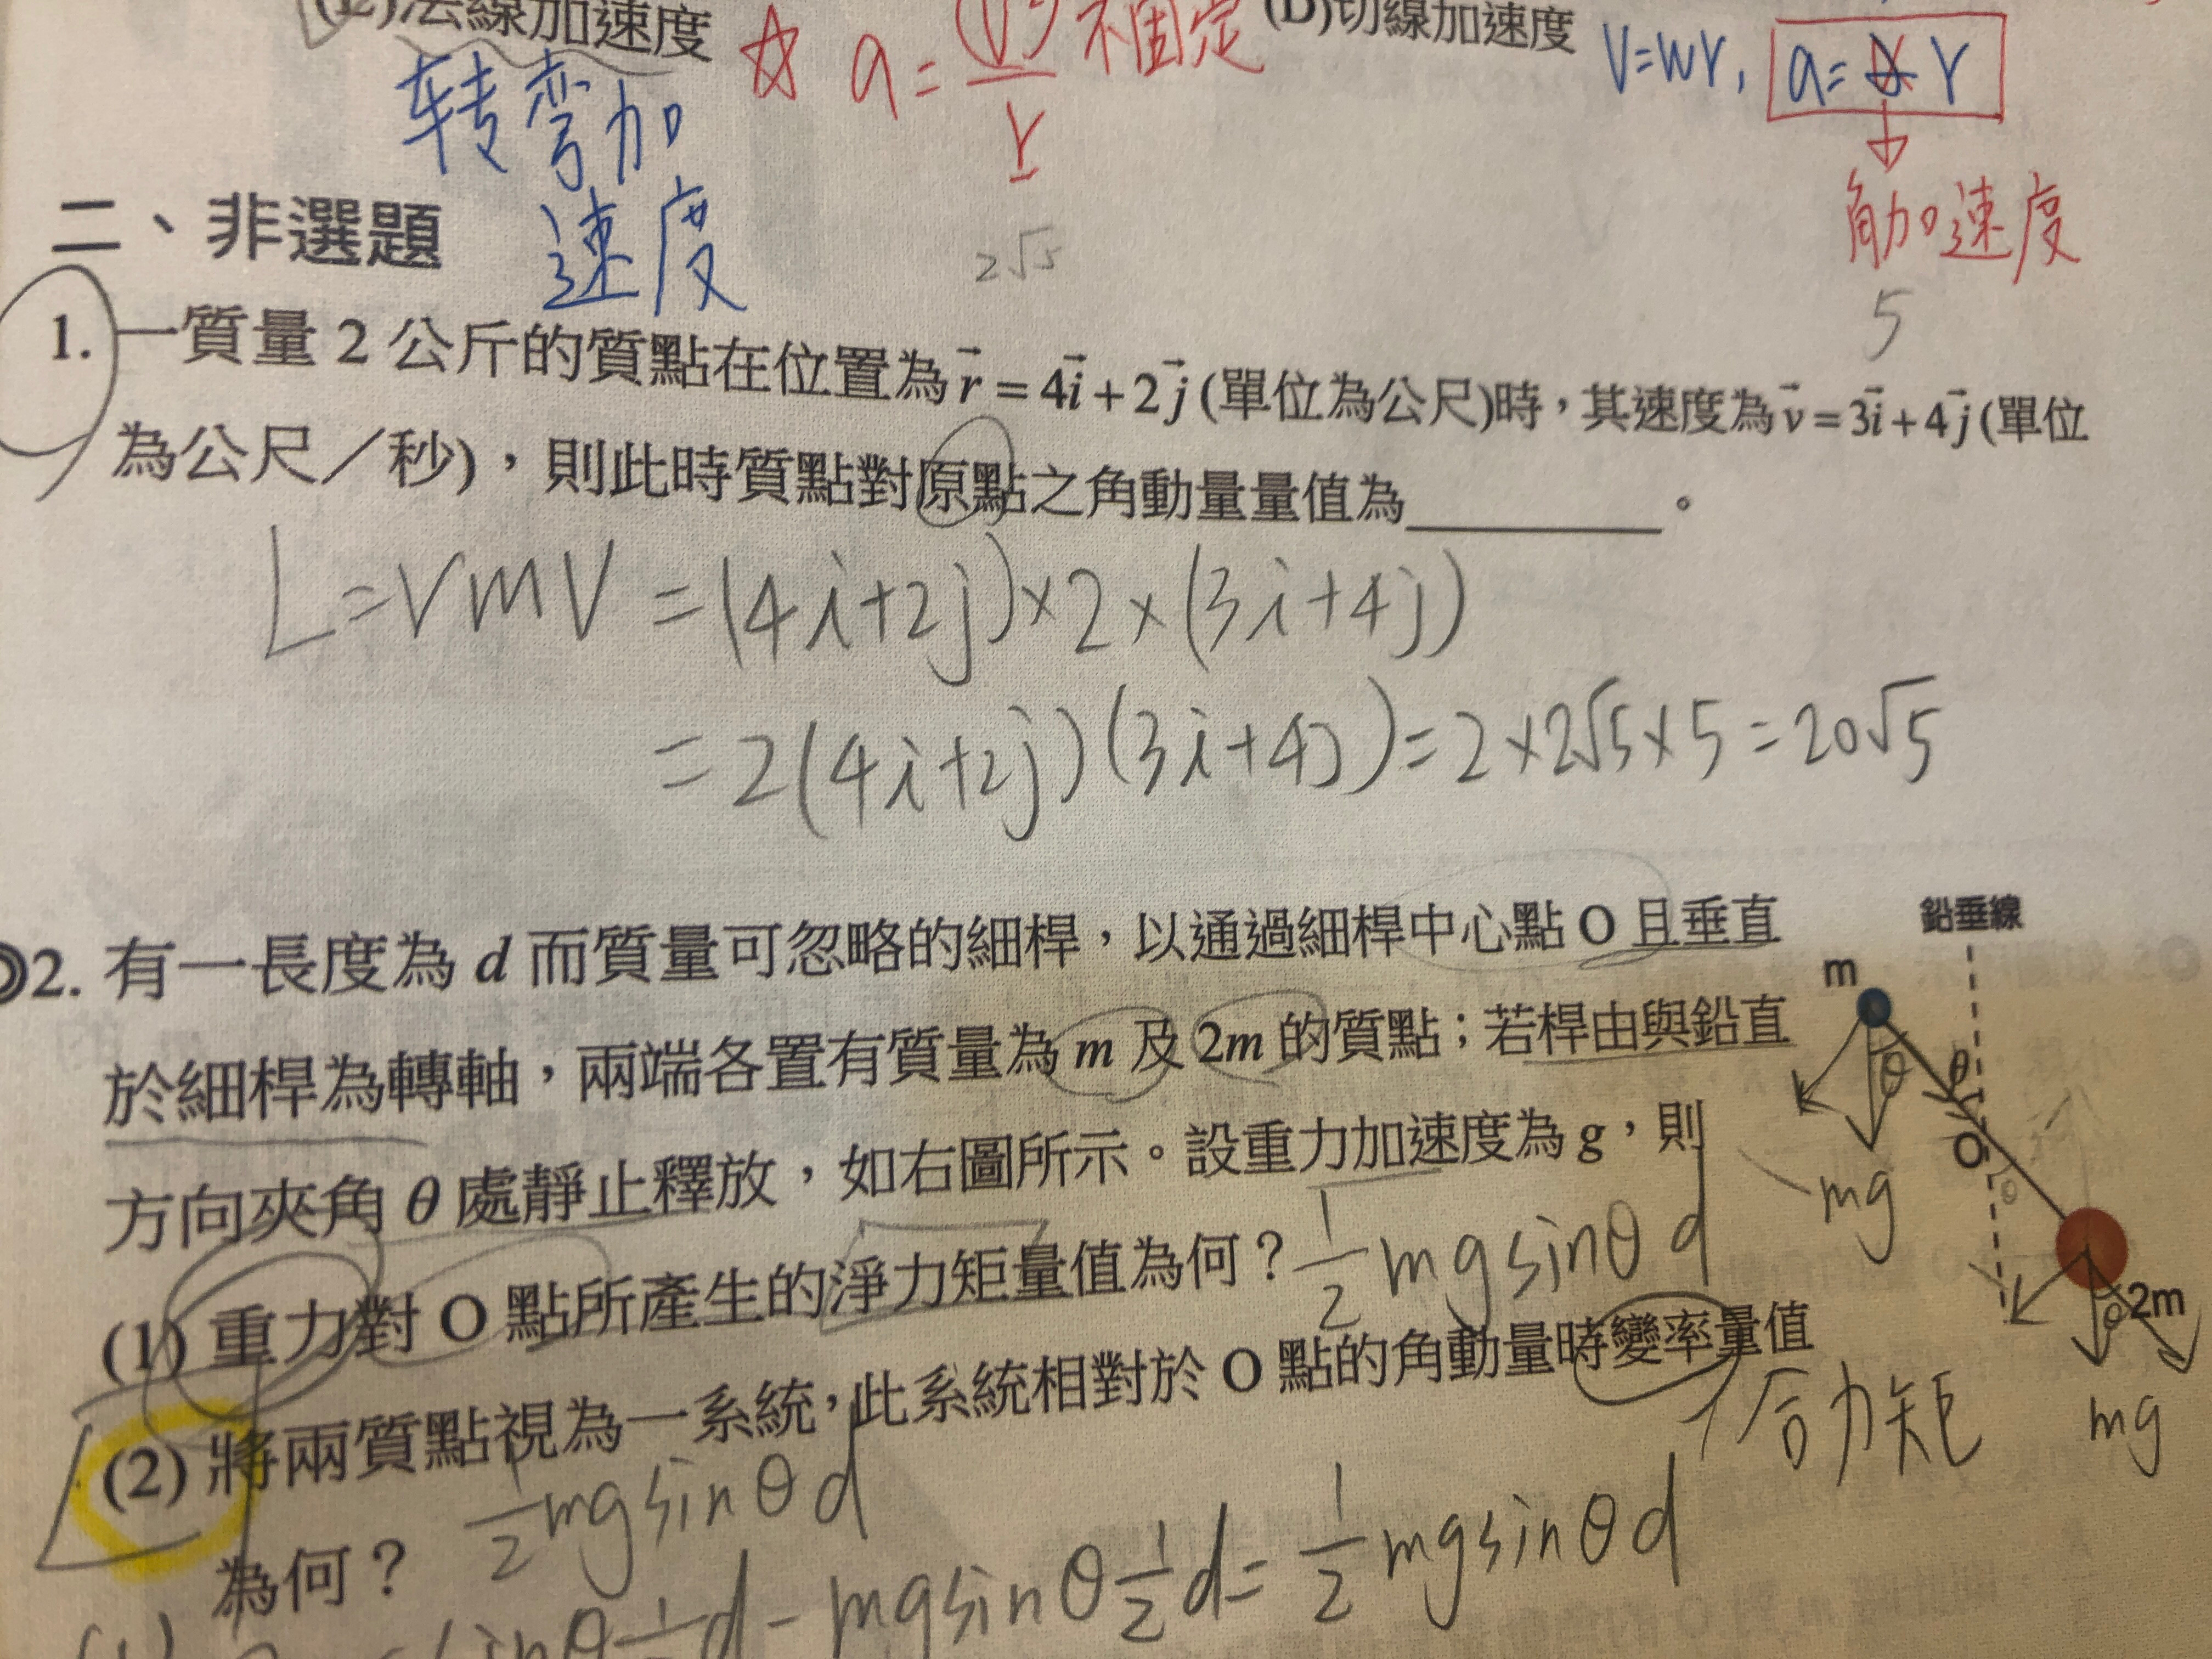 法線加速度 ☆ a = (v²)/r 不固定 (D)切線加速度 v=wr, a=αr
转弯加
速度
角加速度
二、非選題
2√5
5
1. 一質量 2 公斤的質點在位置為 r⃗ = 4i⃗ + 2j⃗ (單位為公尺)時，其速度為 v⃗ = 3i⃗ + 4j⃗ (單位
為公尺／秒)，則此時質點對原點之角動量量值為________。
L = rmv = (4i+2j)×2×(3i+4j)
= 2(4i+2j)(3i+4j) = 2×2√5×5 = 20√5
2. 有一長度為 d 而質量可忽略的細桿，以通過細桿中心點 O 且垂直
於細桿為轉軸，兩端各置有質量為 m 及 2m 的質點；若桿由與鉛直
方向夾角 θ 處靜止釋放，如右圖所示。設重力加速度為 g，則
(1) 重力對 O 點所產生的淨力矩量值為何？ 1/2 mg sinθ d
(2) 將兩質點視為一系統，此系統相對於 O 點的角動量時變率量值
合力矩
為何？ 1/2 mg sinθ d
sinθ 1/2 d - mg sinθ 1/2 d = 1/2 mg sinθ d
鉛垂線
m
θ
θ
O
θ
mg
2m
θ
mg